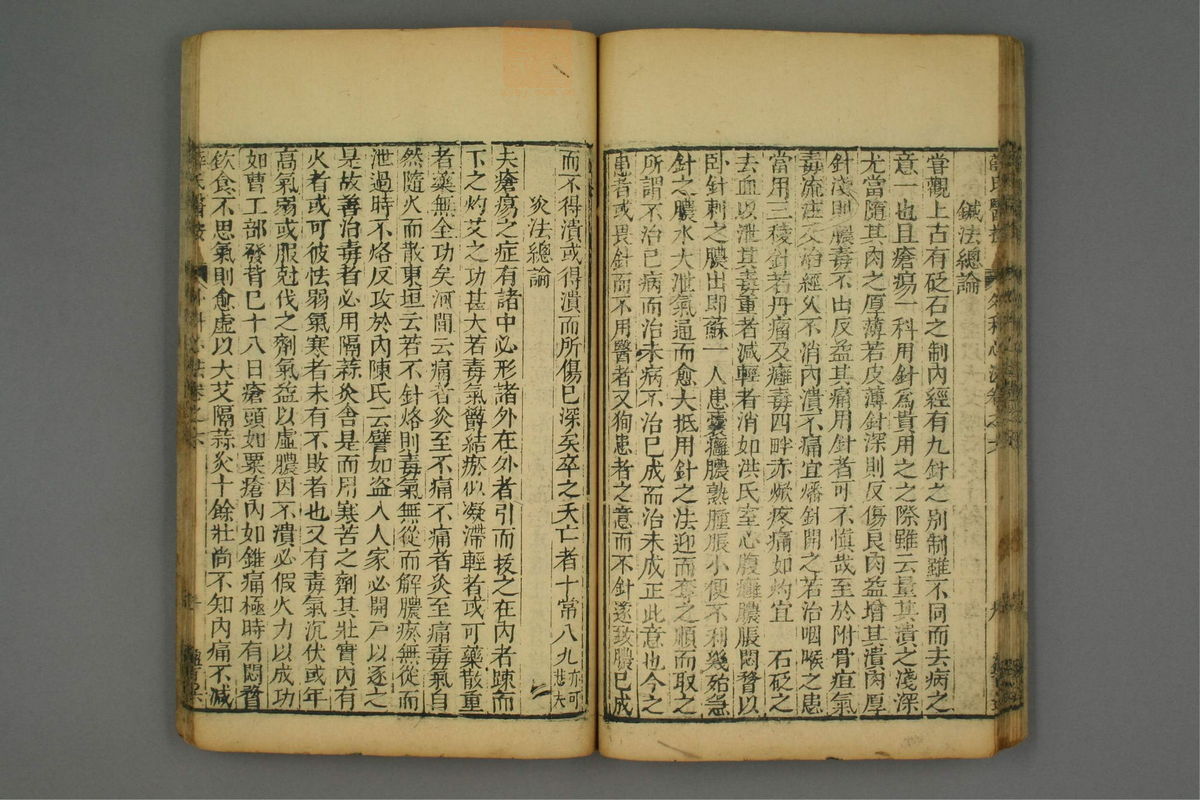 鍼法總論
嘗觀上古有砭石之制內經有九針之別制雖不同而去病之
意一也且瘡瘍一科用針爲貴用之之際雖云量其潰之淺深
尤當隨其肉之厚薄若皮薄針深則反傷良肉益增其潰肉厚
針淺則膿毒不出反益其痛用針者可不慎哉至於附骨疽氣
毒流注及治經久不消內潰不痛宜燔針開之若治咽喉之患
當用三稜針若丹瘤及癰毒四畔赤焮疼痛如灼宜 石砭之
去血以泄其毒重者減輕者消如洪氏室心腹癰膿脹悶瞀以
臥針刺之膿出即蘇一人患囊癰膿熟腫脹小便不利幾殆急
針之膿水大泄氣通而愈大抵用針之法迎而奪之順而取之
所謂不治已病而治未病不治已成而治未成正此意也今之
患者或畏針而不用醫者又狥患者之意而不針遂致膿已成
而不得潰或得潰而所傷已深矣卒之夭亡者十常八九亦可哉夫
灸法總論
夫瘡瘍之症有諸中必形諸外在外者引而拔之在內者踈而
下之灼艾之功甚大若毒氣欝結瘀血凝滯輕者或可藥散重
者藥無全功矣河間云痛者灸至不痛不痛者灸至痛毒氣自
然隨火而散東垣云若不針烙則毒氣無從而解膿瘀無從而
泄過時不烙反攻於內陳氏云譬如盜入人家必開戶以逐之
是故善治毒者必用隔蒜灸舍是而用寒苦之劑其壯實內有
火者或可彼怯弱氣寒者未有不敗者也又有毒氣沉伏或年
高氣弱或服尅伐之劑氣益以虛膿因不潰必假火力以成功
如曹工部發背已十八日瘡頭如粟瘡內如錐痛極時有悶瞀
飲食不思氣則愈虛以大艾隔蒜灸十餘壯尚不知內痛不減